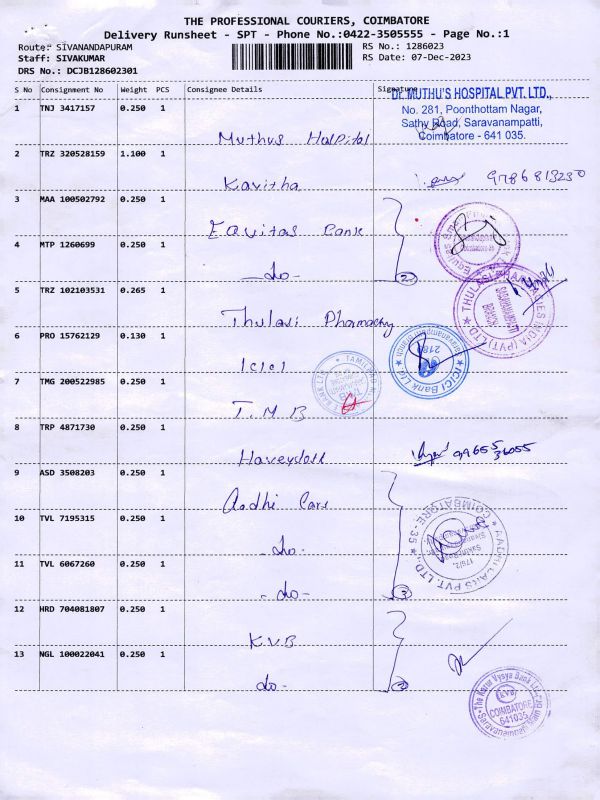 THE PROFESSIONAL COURIERS, COIMBATORE
Delivery Runsheet - SPT - Phone No.:0422-3505555 - Page No.:1
Route: SIVANANDAPURAM
RS No.: 1286023
Staff: SIVAKUMAR
RS Date: 07-Dec-2023
DRS No.: DCJB128602301
S No Consignment No Weight PCS Consignee Details Signature
Dr. MUTHU'S HOSPITAL PVT. LTD.,
No. 281, Poonthottam Nagar,
Sathy Road, Saravanampatti,
Coimbatore - 641 035.
1 TNJ 3417157 0.250 1
Muthus Hospital
2 TRZ 320528159 1.100 1
Kavitha 9786813230
3 MAA 100502792 0.250 1
Equitas Bank
4 MTP 1260699 0.250 1
-do- 2
5 TRZ 102103531 0.265 1
Thulasi Pharmacy
THULASI PHARMACIES INDIA (PVT) LTD
SARAVANAMPATTI
BRANCH
6 PRO 15762129 0.130 1
ICICI
ICICI Bank Ltd.
7 TMG 200522985 0.250 1
T.M.B
8 TRP 4871730 0.250 1
9965536055
9 ASD 3508203 0.250 1
Aadhi Cars
AADHI CARS PVT. LTD.,
COIMBATORE-35
10 TVL 7195315 0.250 1
-do-
11 TVL 6067260 0.250 1
-do- 3
12 HRD 704081807 0.250 1
K.V.B
13 NGL 100022041 0.250 1
do- 2
The Karur Vysya Bank Ltd
KVB
COIMBATORE
641035